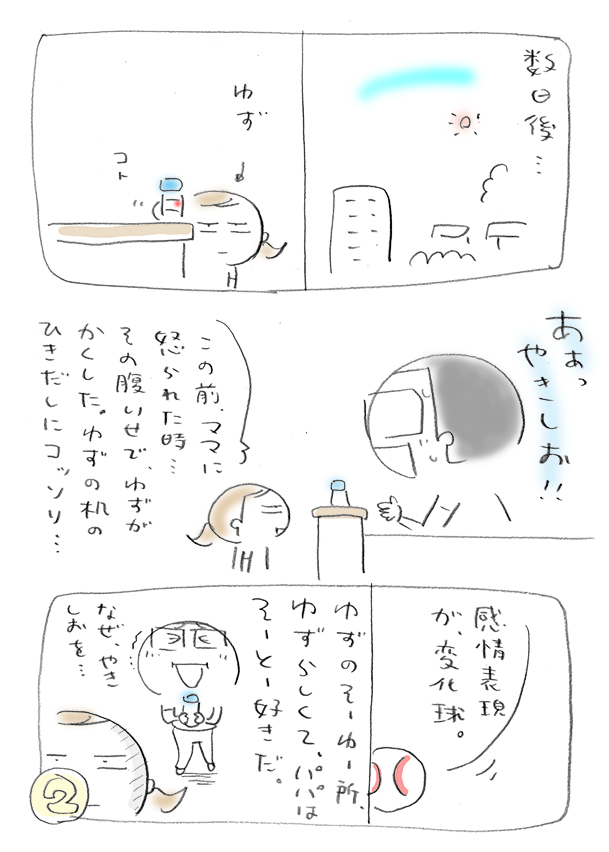 数日後…
ゆず
コト
あぁっ
やきしお!!
この前、ママに
怒られた時…
その腹いせで、ゆずが
かくした。ゆずの机の
ひきだしにコッソリ…
感情表現
が、変化球。
ゆずのそーゆー所、
ゆずらしくて、パパは
そーとー好きだ。
なぜ、やき
しおを…
2